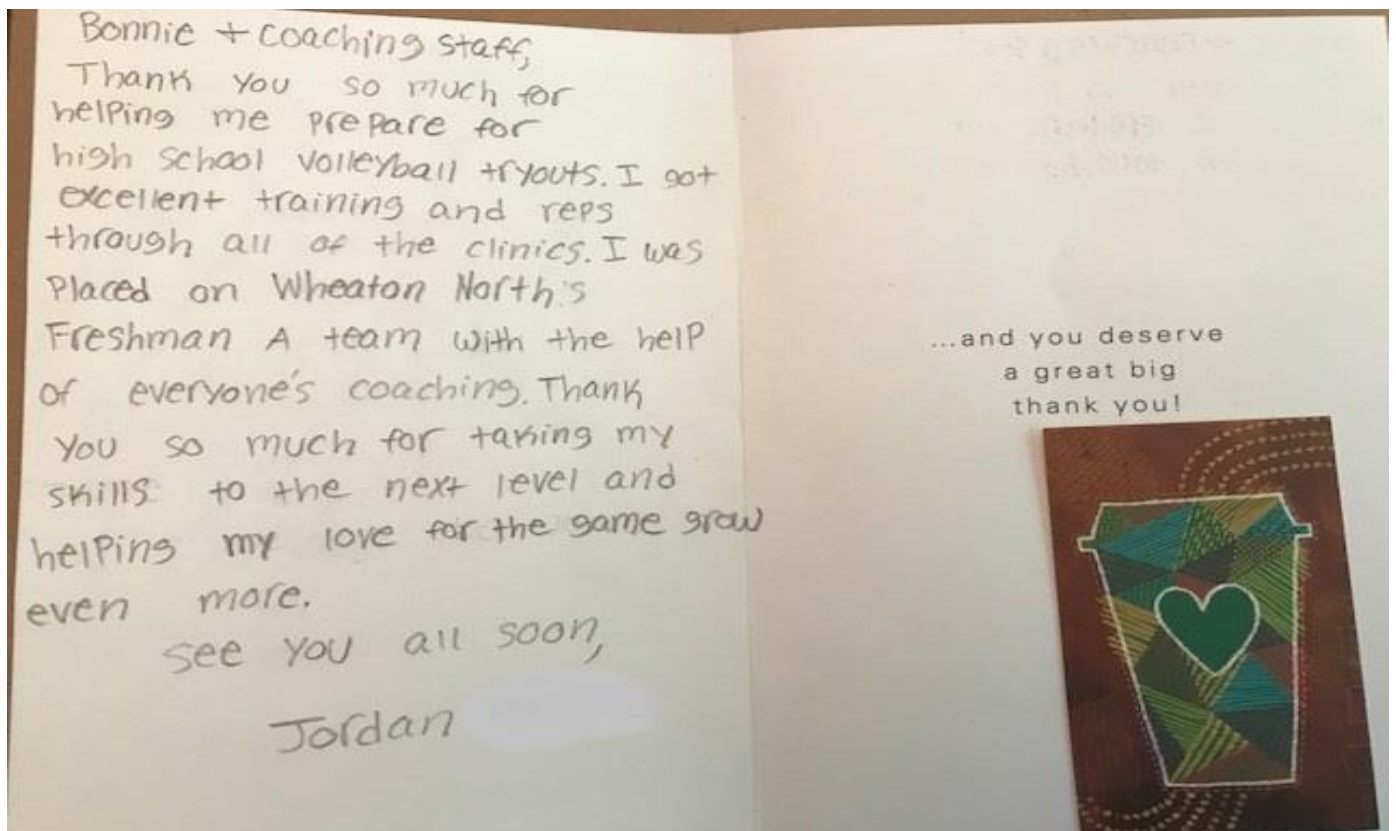 Bonnie + coaching staff,
Thank you so much for
helping me prepare for
high school volleyball tryouts. I got
excellent training and reps
through all of the clinics. I was
placed on Wheaton North's
Freshman A team with the help
of everyone's coaching. Thank
you so much for taking my
skills to the next level and
helping my love for the game grow
even more.
see you all soon,
Jordan
...and you deserve
a great big
thank you!